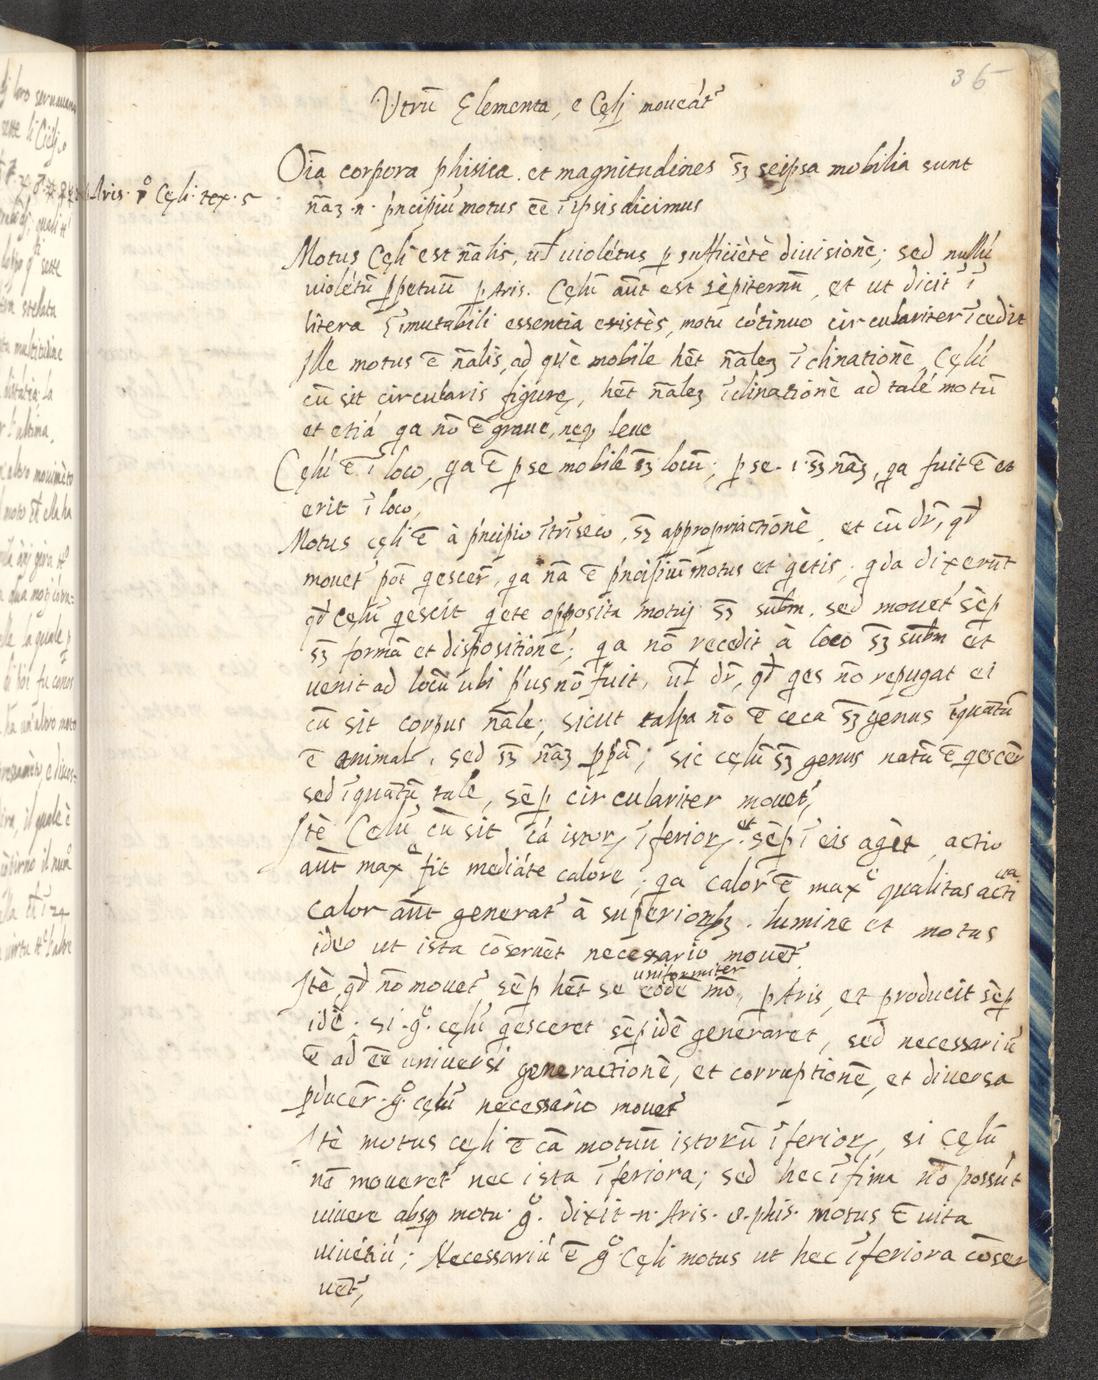 36
Utrũ Elementa, e Cęlj moueát'
Oĩa corpora phisica. et magnitudines s̃ȝ seipsa mobilia sunt
Aris. p.º Cęli. tex. 5
ñaȝ .n. p'ncipiũ motus ẽẽ ĩ ipsis dicimus
Motus Cęli est ñalis, uł violẽtus p sufficiẽtẽ diuisionẽ; sed nullũ
violẽtũ ppetuũ p Aris. Cęlũ aũt est sẽpiternũ, et ut dicit' ĩ
litera ĩmutabili essentia existẽs, motu cõtinuo circulariter ĩcedit
Ille motus ẽ ñalis, ad quẽ mobile hẽt ñaleȝ ĩclinationẽ, Cęlũ
cũ sit circularis figurę, hẽt ñaleȝ ĩclinationẽ ad talẽ motũ
et etiá qa nõ ẽ graue, neq leue
Cęlũ ẽ ĩ loco, qa ẽ p se mobile s̃ȝ locũ; p se .i. s̃ȝ ñaȝ, qa fuit ẽ et
erit ĩ loco,
Motus cęli ẽ à p'ncipio ĩtrĩseco, s̃ȝ appropriactionẽ, et cũ dr̃, qđ
mouet' pot̃ qescer̃, qa ña ẽ p'ncipiũ motus et qetis; qda dixerũt
qđ cęlũ qescit qete opposita motuj s̃ȝ subm̃. sed mouet' sẽp
s̃ȝ formã et dispositionẽ; qa nõ recedit à loco s̃ȝ subm̃ et
uenit ad locũ ubi p'us nõ fuit, uł dr̃, qđ qes nõ repugat ei
cũ sit corpus ñale; sicut talpa nõ ẽ ceca s̃ȝ genus ĩquatũ
ẽ animal, sed s̃ȝ ñaȝ ppã; sic cęlũ s̃ȝ genus natũ ẽ qescer̃
sed ĩquatũ tale, sẽp circulariter mouet',
Itẽ Cęlũ cũ sit cã istoꝝ ĩferioꝝ. et sẽp ĩ eis agẽs, actio
aũt maxᵉ fit mediáte calore; qa calor ẽ maxᵉ qualitas actiua
calor aũt generat' à superiorib. lumine et motus
ideo ut ista cõseruẽt necessario mouet'
Itẽ qđ nõ mouet' sẽp hẽt se uniformiter eodẽ mõ, p Aris, et producit sẽp
idẽ. si .gº. cęlũ qesceret sẽp idẽ generaret, sed necessariũ
ẽ ad ẽẽ uniuersi generactionẽ, et corruptionẽ, et diuersa
pducer̃ .gº. cęlũ necessario mouet'
Itẽ motus cęli ẽ cã motuũ istorũ ĩferioꝝ, si cęlũ
nõ moueret' nec ista ĩferiora; sed hec ĩfima nõ possũt
uiuere absq motu. gº. dixit .n. Aris. 8. phis. motus ẽ uita
uiuẽtiũ; Necessariũ ẽ gº Cęli motus ut hec ĩferiora cõser
uẽt',